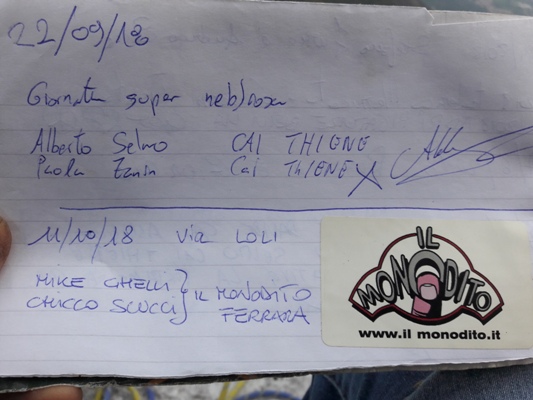 22/09/18
Giornata super nebbiosa
Alberto Selmo CAI THIENE
Paola Zanin Cai THIENE
11/10/18 Via LOLI
MIKE GHELLI
CHICCO SCUCCI } IL MONODITO
FERRARA
IL
MONODITO
www.il monodito.it